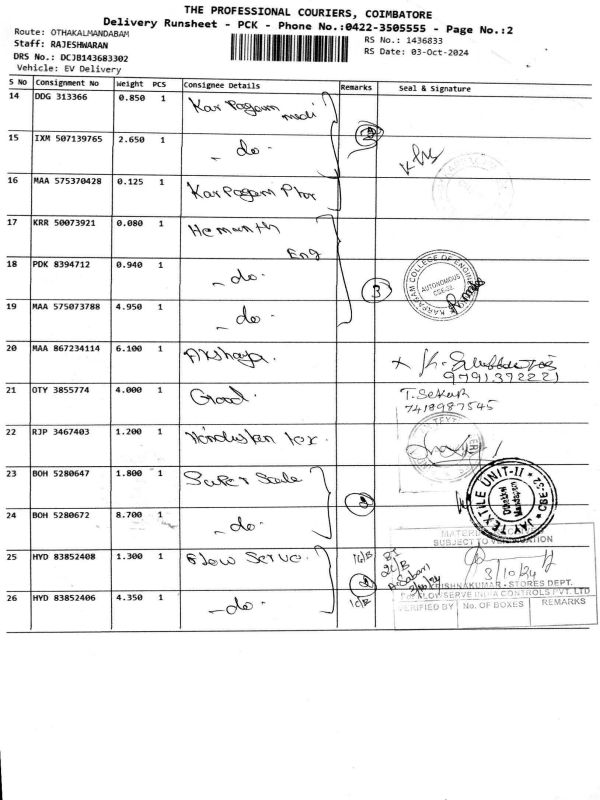 THE PROFESSIONAL COURIERS, COIMBATORE
Delivery Runsheet - PCK - Phone No.:0422-3505555 - Page No.:2
Route: OTHAKALMANDABAM
Staff: RAJESHWARAN
DRS No.: DCJB143683302
Vehicle: EV Delivery
RS No.: 1436833
RS Date: 03-Oct-2024
S No Consignment No Weight PCS Consignee Details Remarks Seal & Signature
14 DDG 313366 0.850 1 Karpagam medi
15 IXM 507139765 2.650 1 - do -
16 MAA 575370428 0.125 1 Karpagam
17 KRR 50073921 0.080 1 Hemanth Eng
18 PDK 8394712 0.940 1 - do -
3
KARPAGAM COLLEGE OF ENGINEERING
AUTONOMOUS
CBE-32.
19 MAA 575073788 4.950 1 - do -
20 MAA 867234114 6.100 1 Akshaya.
9791372221
21 OTY 3855774 4.000 1 Good.
T. Sekar
7418987545
22 RJP 3467403 1.200 1 Hindustan tex.
23 BOH 5280647 1.800 1
JAY TEXTILE UNIT-II
CBE-32
24 BOH 5280672 8.700 1 - do -
SUBJECT TO VERIFICATION
25 HYD 83852408 1.300 1 Flow Serve
3/10/24
KRISHNAKUMAR - STORES DEPT.
FLOWSERVE INDIA CONTROLS PVT. LTD
26 HYD 83852406 4.350 1 - do -
VERIFIED BY No. OF BOXES REMARKS